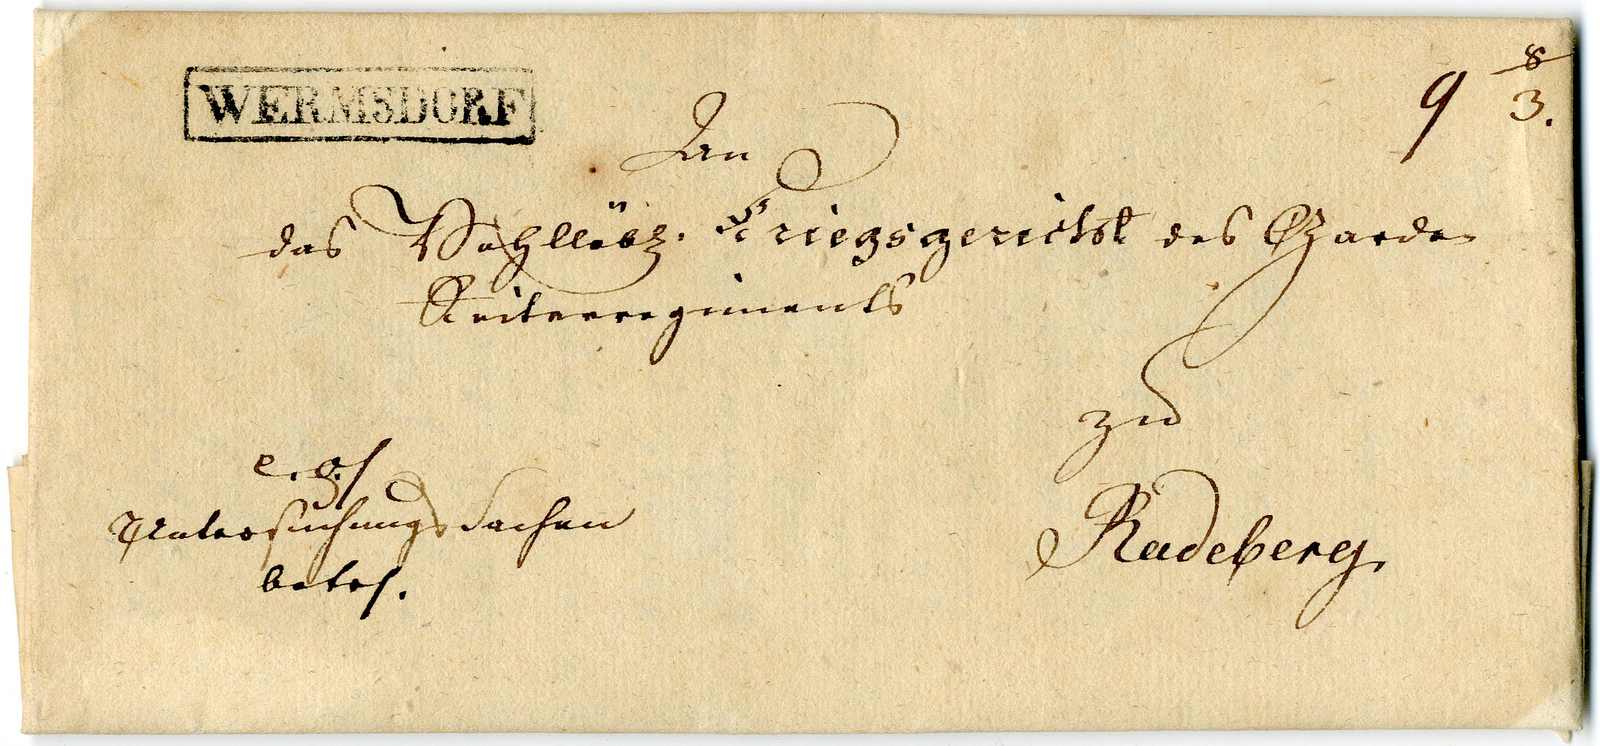 WERMSDORF
9 8/3.
An
das Wohllöbl. Kriegsgericht des Garde-
Reiterregiments
zu
Radeberg.
Untersuchungs Sachen
betr.